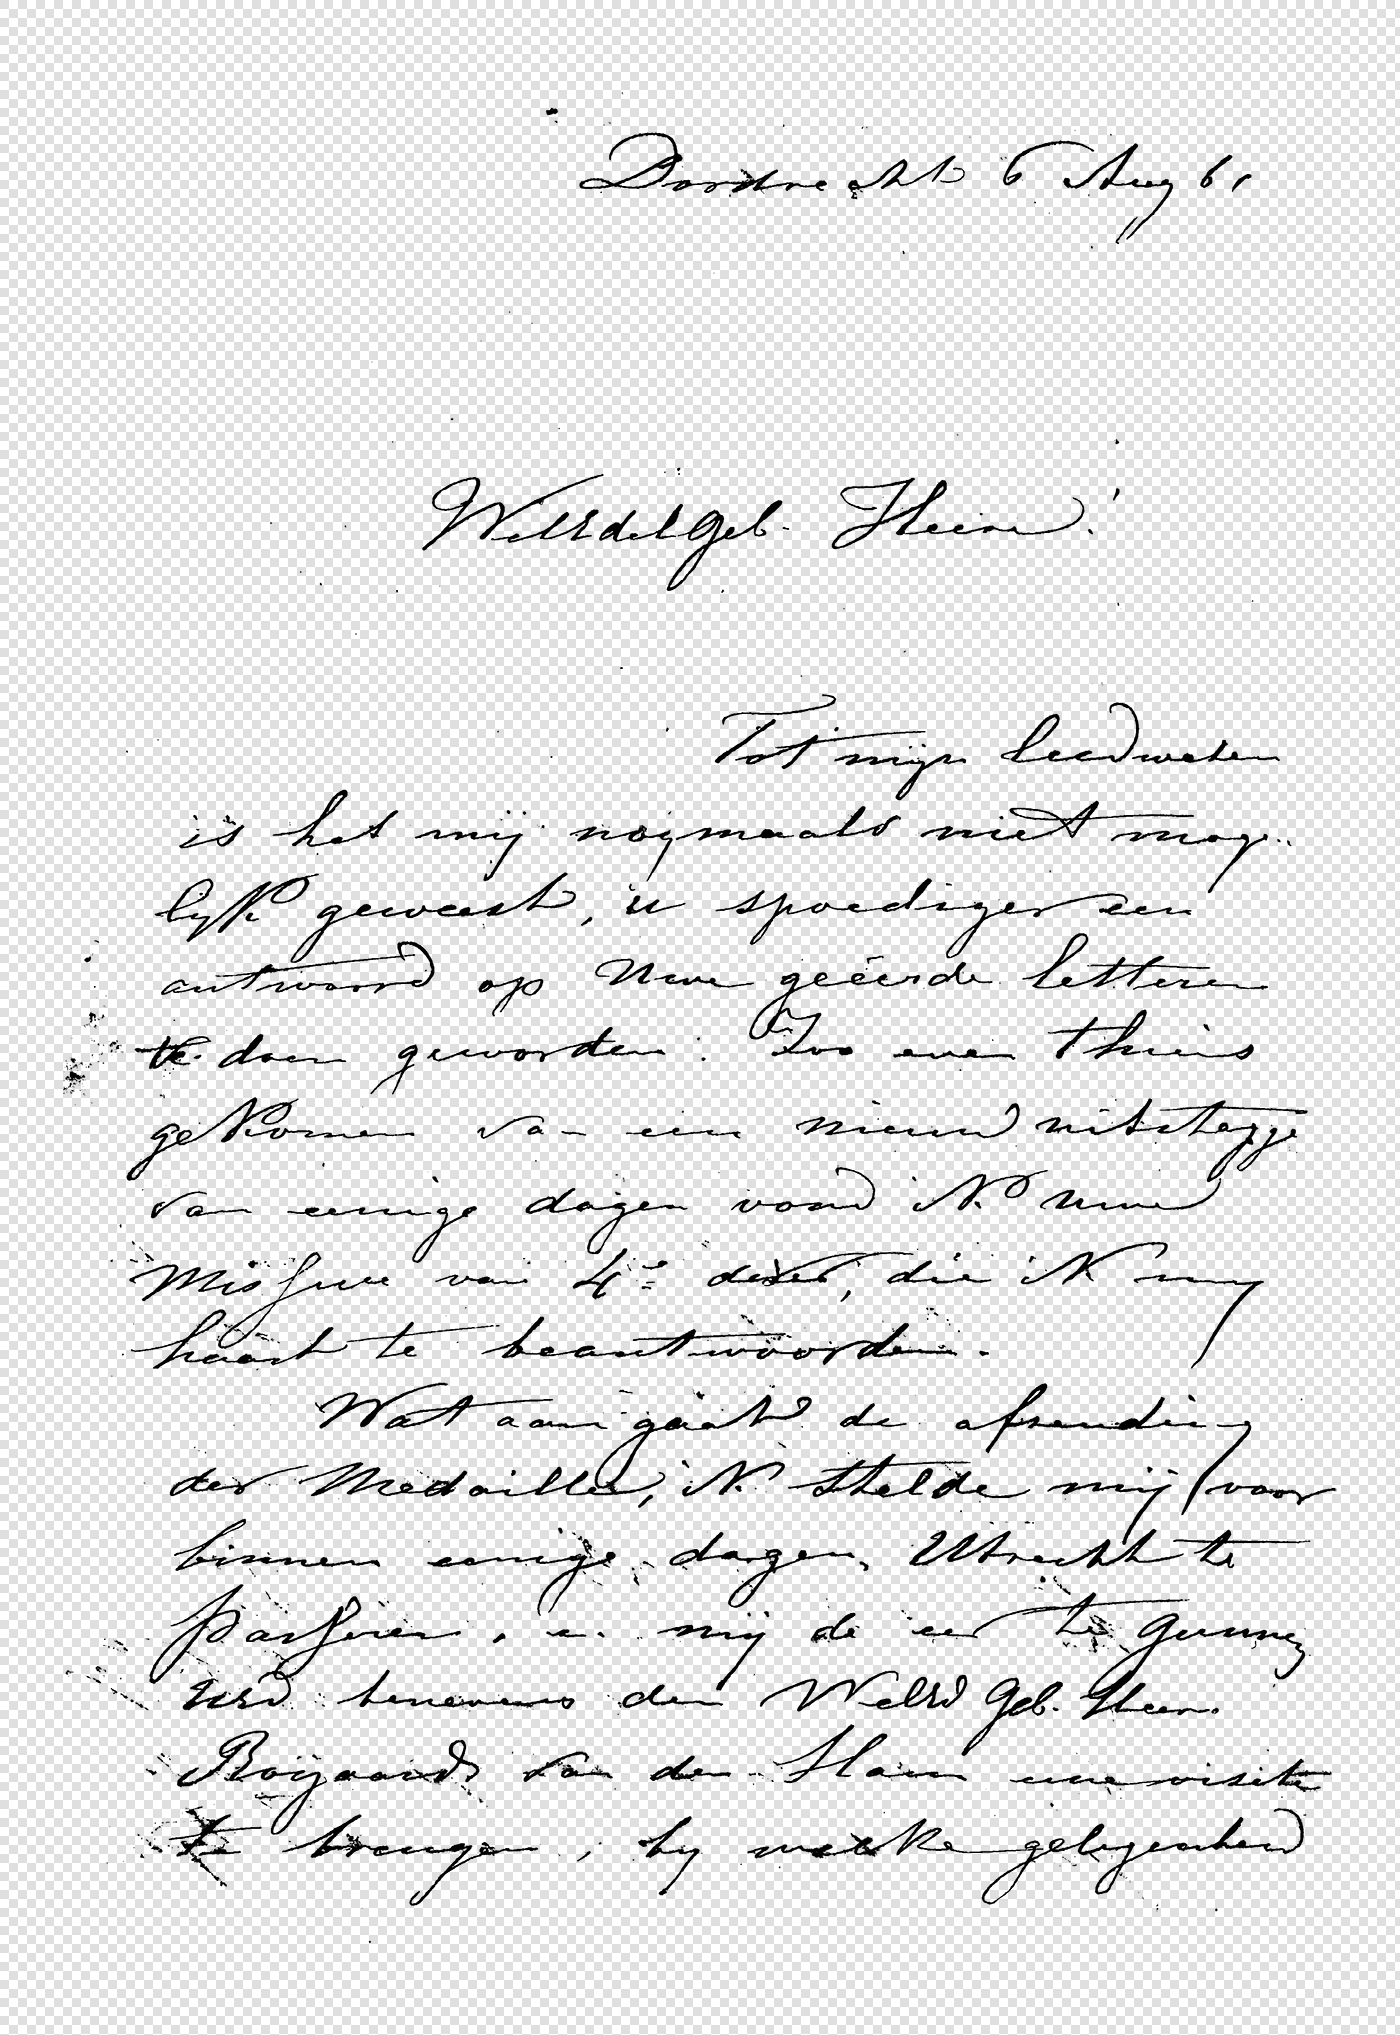 Dordrecht 6 Aug 61
WelEdelGeb. Heer!
Tot mijn leedweten
is het mij nogmaals niet mog..
lijk geweest, u spoediger een
antwoord op Uwe geëerde letteren
te doen geworden: Zoo even thuis
gekomen van een nieuw uitstapje
van eenige dagen vond ik uwe
Missive van 4e dezer, die ik mij
haast te beantwoorden.
Wat aangaat de afzending
der Medailles, ik stelde mij voor
binnen eenige dagen, Utrecht te
passeren, en mij de eer te gunnen
UEd benevens den WelEd Geb. Heer.
Boijaards van den Ham eene visite
te brengen, bij welke gelegenheid